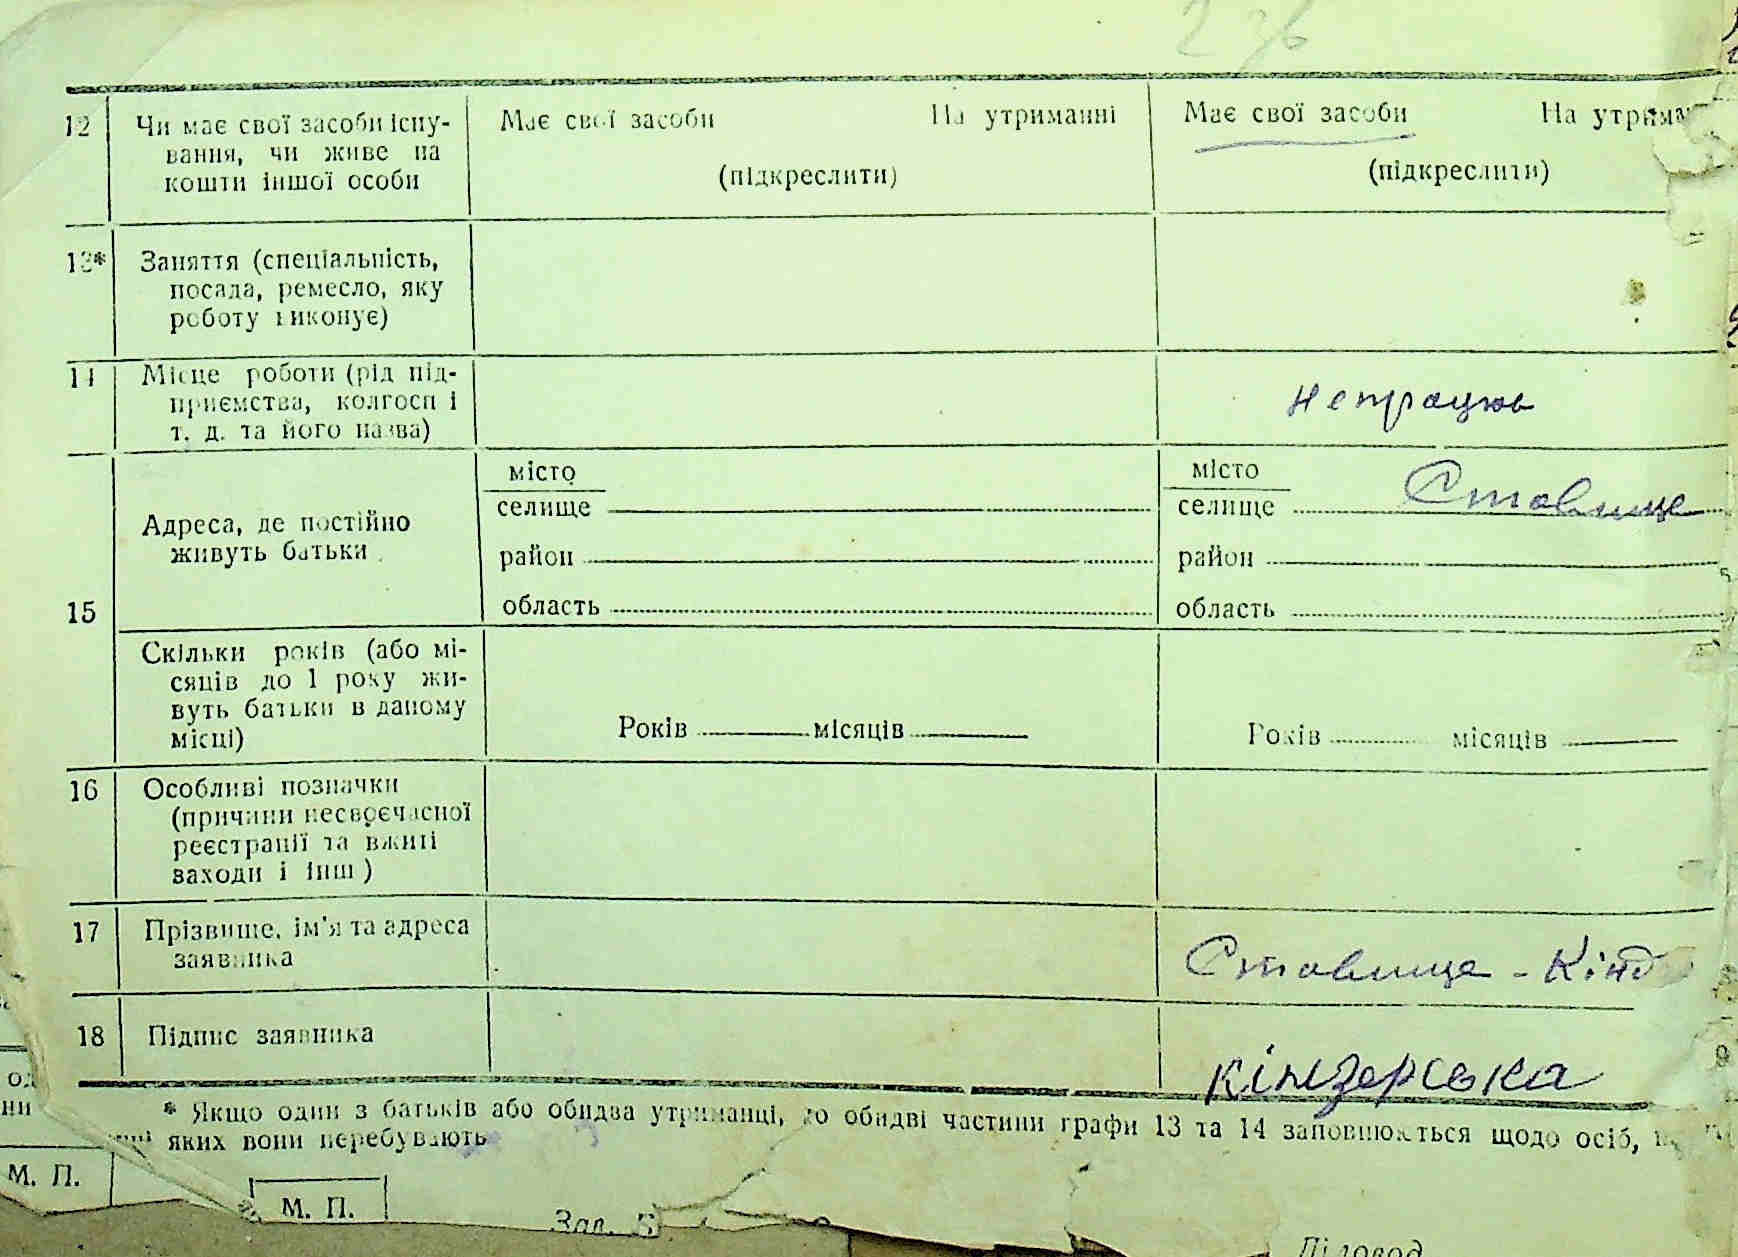 2 зв
12 Чи має свої засоби існу- Має свої засоби На утриманні Має свої засоби На утрима
вання, чи живе на
кошти іншої особи (підкреслити) (підкреслити)
13* Заняття (спеціальність,
посада, ремесло, яку
роботу виконує)
14 Місце роботи (рід під-
приємства, колгосп і непрацює
т. д. та його назва)
місто місто
селище селище Ставище
Адреса, де постійно
живуть батьки район район
15 область область
Скільки років (або мі-
сяців до 1 року жи-
вуть батьки в даному Років місяців Років місяців
місці)
16 Особливі позначки
(причини несвоєчасної
реєстрації та вжиті
заходи і інш)
17 Прізвище, ім'я та адреса
заявника Ставище -
18 Підпис заявника
кінзерська
* Якщо один з батьків або обидва утриманці, то обидві частини графи 13 та 14 заповнюються щодо осіб,
яких вони перебувають
М. П.
М. П.
Зап.
Діловод